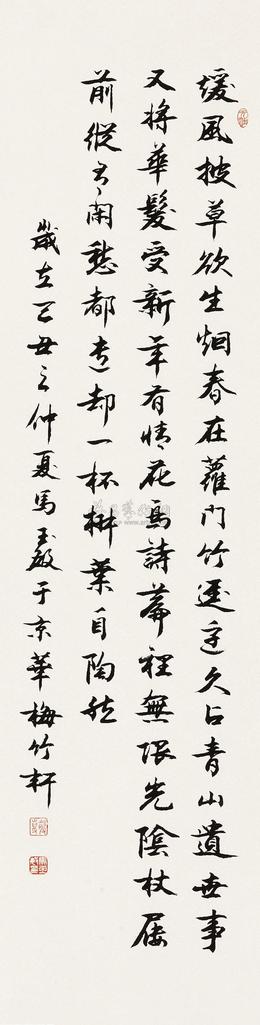 煖風披草欲生烟春在蘿門竹逕邊久占青山遺世事
又將華髮受新年有情花鳥詩篇裡無限光陰杖屨
前縱有閑愁都遣却一杯椒葉自陶然
歲在己丑之仲夏馬玉啟于京華梅竹軒